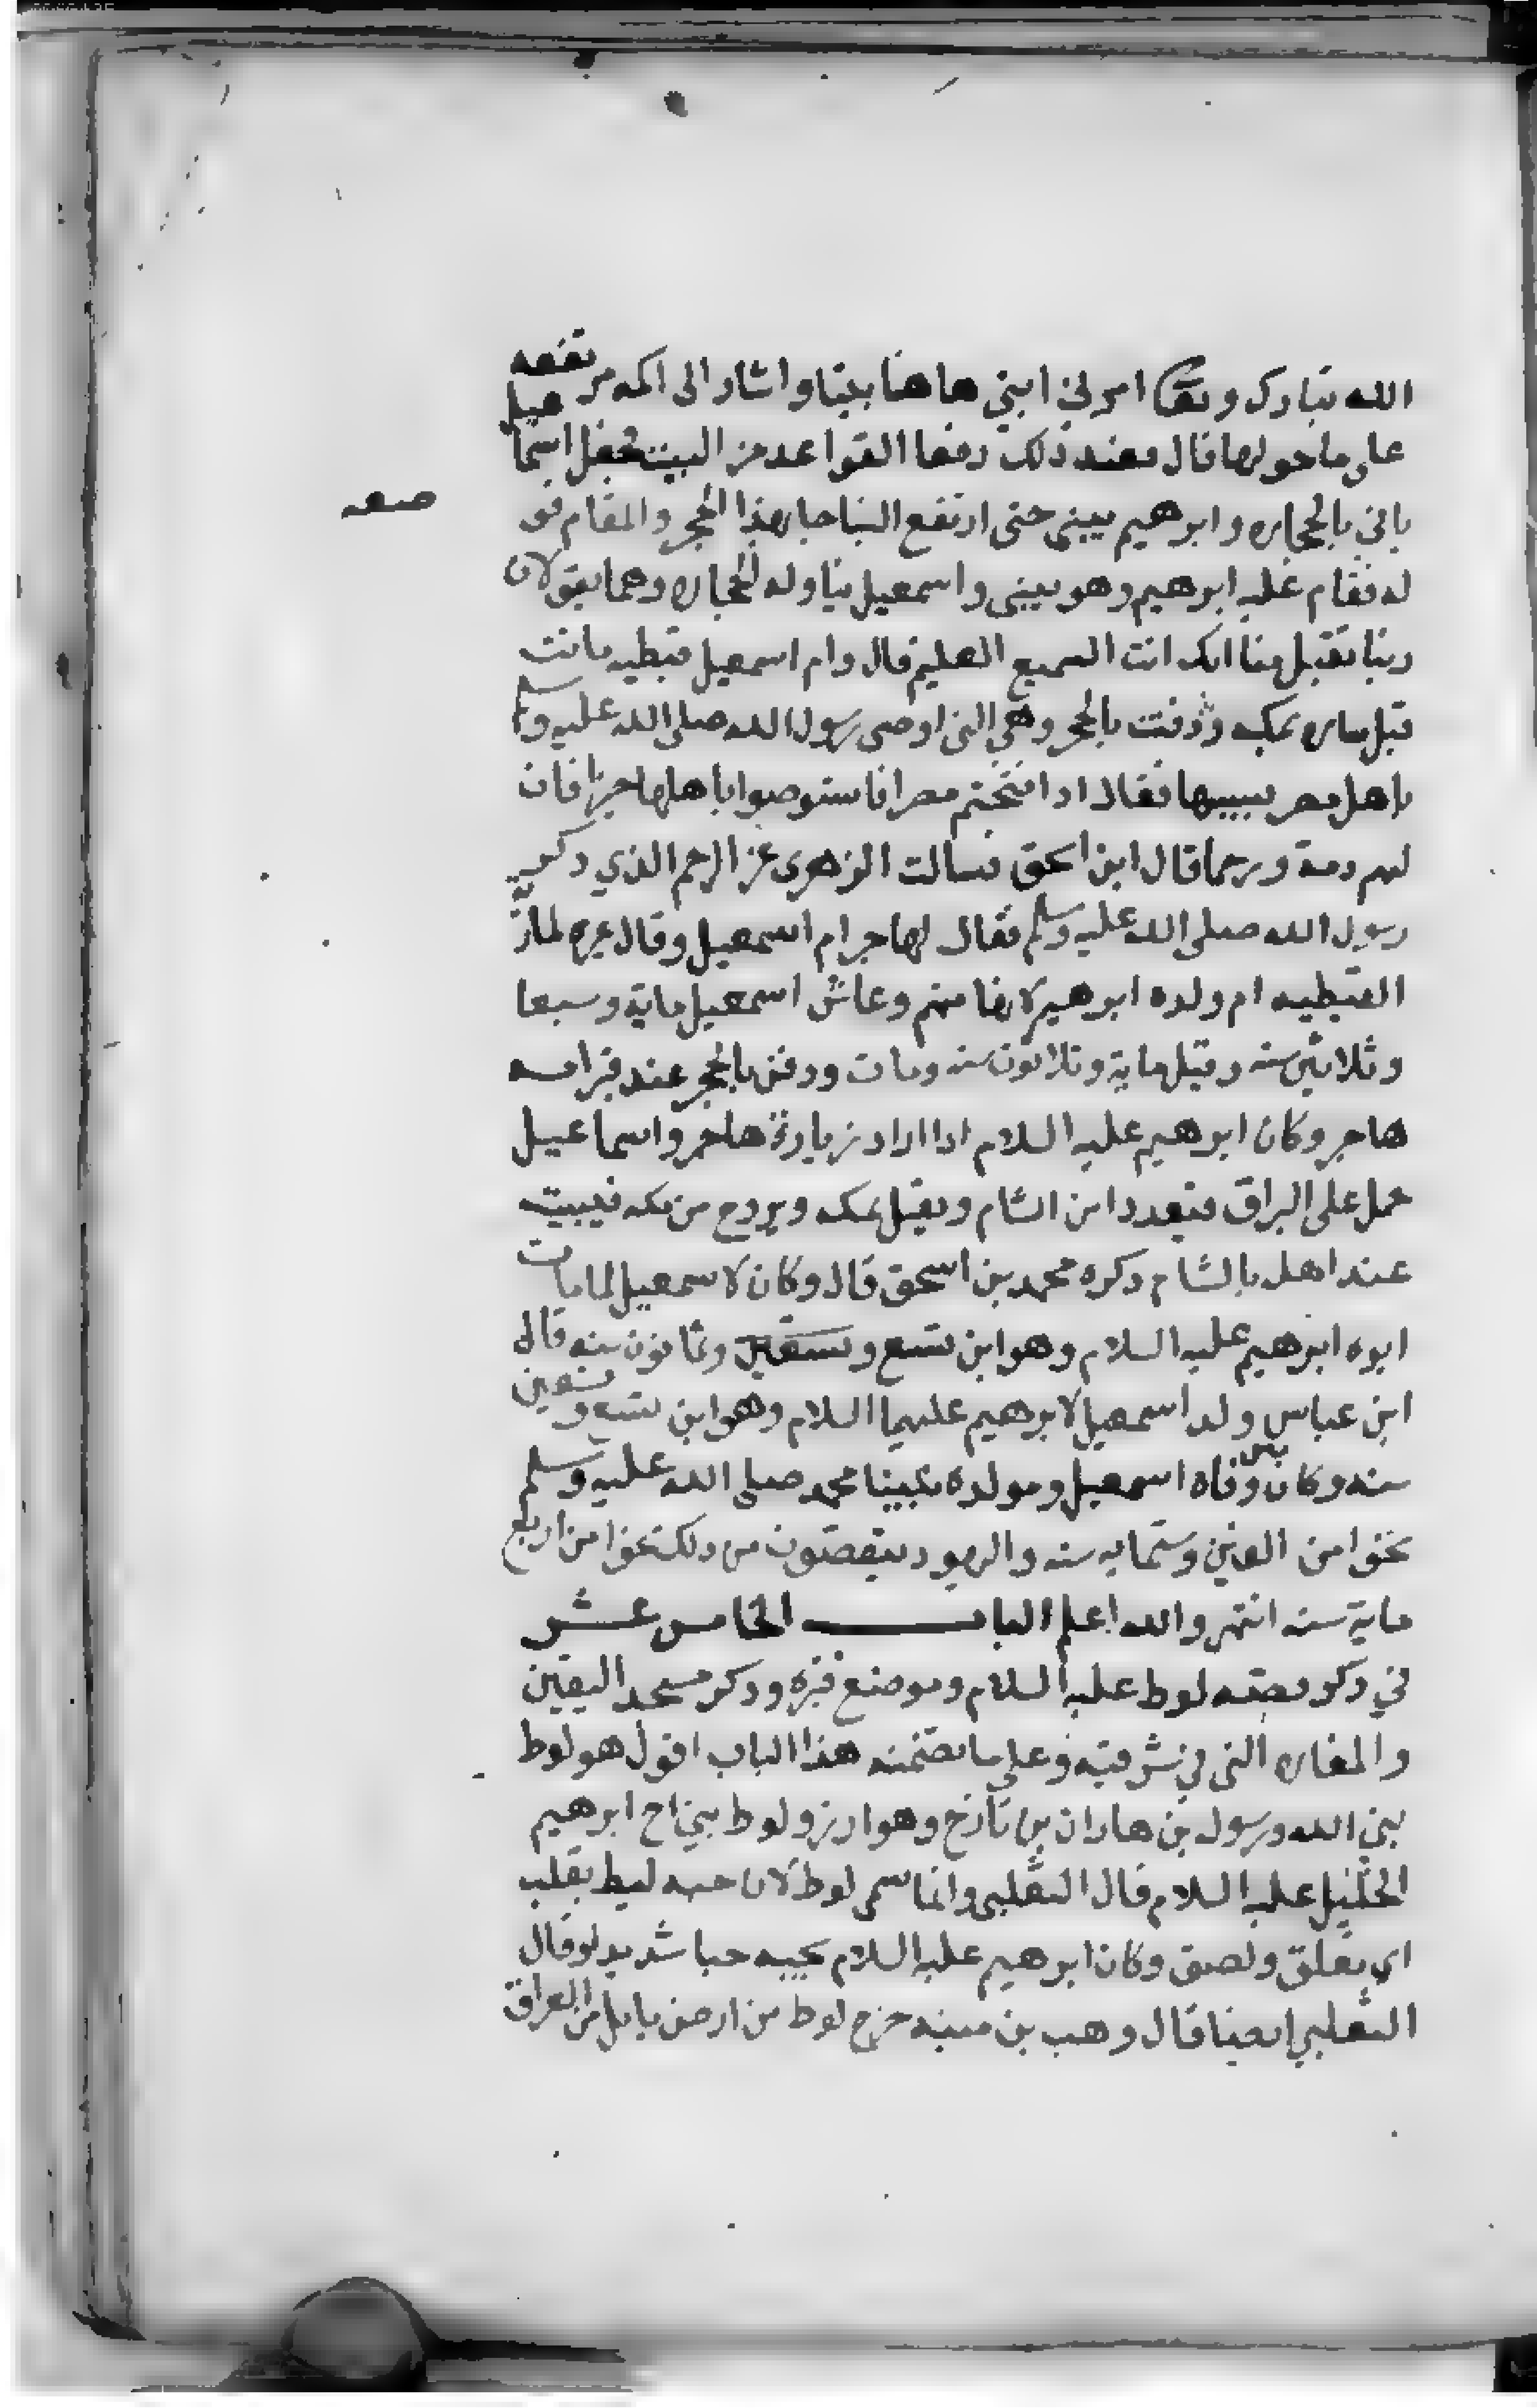 الله تبارك وتعا امرني ابني هاهنا بيتا واشار الى اكمه مرتفعه
على ما حولها قال فعند ذلك رفعا القواعد من البيت فجعل اسماعيل
ياتي بالحجاره وابرهيم يبني حتى ارتفع البنا جا بهذا الحجر والمقام فو
ضعه
له فقام عليه ابرهيم وهو يبني واسمعيل يناوله الحجاره وهما يقولان
ربنا تقبل منا انك انت السميع العليم قال وام اسمعيل قبطيه ماتت
قبل ساره بمكه ودفنت بالحجر وهي التى اوصى رسول الله صلى الله عليه وسلم
باهل مصر بسببها فقال اذا افتتحتم مصر فاستوصوا باهلها خيرا فان
لهم ذمة ورحما قال ابن اسحق فسالت الزهرى عن الرحم الذي ذكر
رسول الله صلى الله عليه وسلم فقال لهاجر ام اسمعيل وقال غيره لمارية
القبطيه ام ولده ابرهيم لانها منهم وعاش اسمعيل ماية وسبعا
وثلاثين سنه وقيل ماية وثلاثون سنه ومات ودفن بالحجر عند قبر امه
هاجر وكان ابرهيم عليه السلام اذا اراد زيارة هاجر واسماعيل
حمل على البراق فيغدوا من الشام ويقيل بمكه ويروح من مكه فيبيت
عند اهله بالشام ذكره محمد بن اسحق قال وكان لاسمعيل لما مات
ابوه ابرهيم عليه السلام وهو ابن تسع وتسعين وثمانون سنه قال
ابن عباس ولد اسمعيل لابرهيم عليهما السلام وهو ابن تسع وتسعين
سنه وكان بين وفاه اسمعيل ومولده نبينا محمد صلى الله عليه وسلم
نحوا من الفين وستمايه سنه واليهود ينقصون من ذلك نحوا من اربع
ماية سنه انتهى والله اعلم الباب الخامس عشر
في ذكر قصته لوط عليه السلام وموضع قبره وذكر مسجد اليقين
والمغاره التى في شرقيه وعلى ما تضمنه هذا الباب اقول هو لوط
نبي الله ورسوله بن هاران بن تارخ وهو ازر ولوط بن اخ ابرهيم
الخليل عليه السلام قال الثعلبى وانما سمى لوط لان حبه ليط بقلب
اي تعلق ولصق وكان ابرهيم عليه السلام يحبه حبا شديدا وقال
الثعلبي ايضا قال وهب بن منبه خرج لوط من ارض بابل من العراق